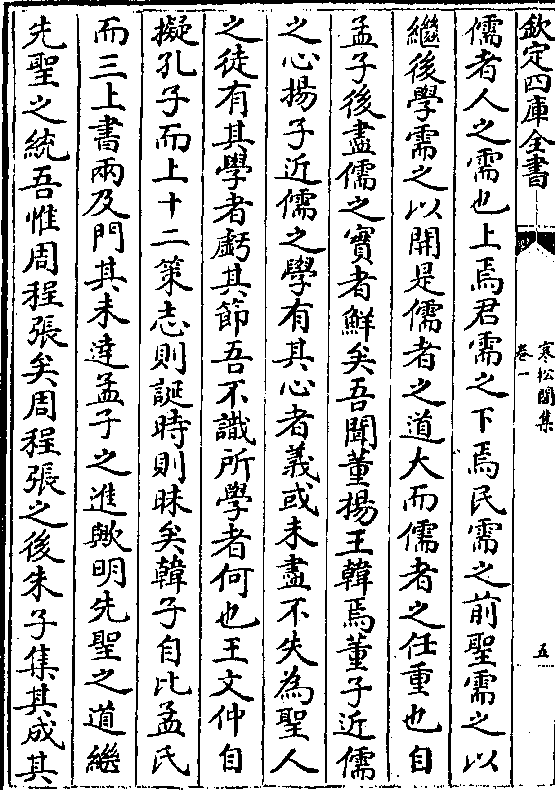 欽定四庫全書
寒松閣集
卷一
五
儒者人之需也上焉君需之下焉民需之前聖需之以
繼後學需之以開是儒者之道大而儒者之任重也自
孟子後盡儒之實者鮮矣吾聞董揚王韓焉董子近儒
之心揚子近儒之學有其心者義或未盡不失為聖人
之徒有其學者虧其節吾不識所學者何也王文仲自
擬孔子而上十二策志則誕時則昧矣韓子自比孟氏
而三上書兩及門其未達孟子之進歟明先聖之道繼
先聖之統吾惟周程張矣周程張之後朱子集其成其